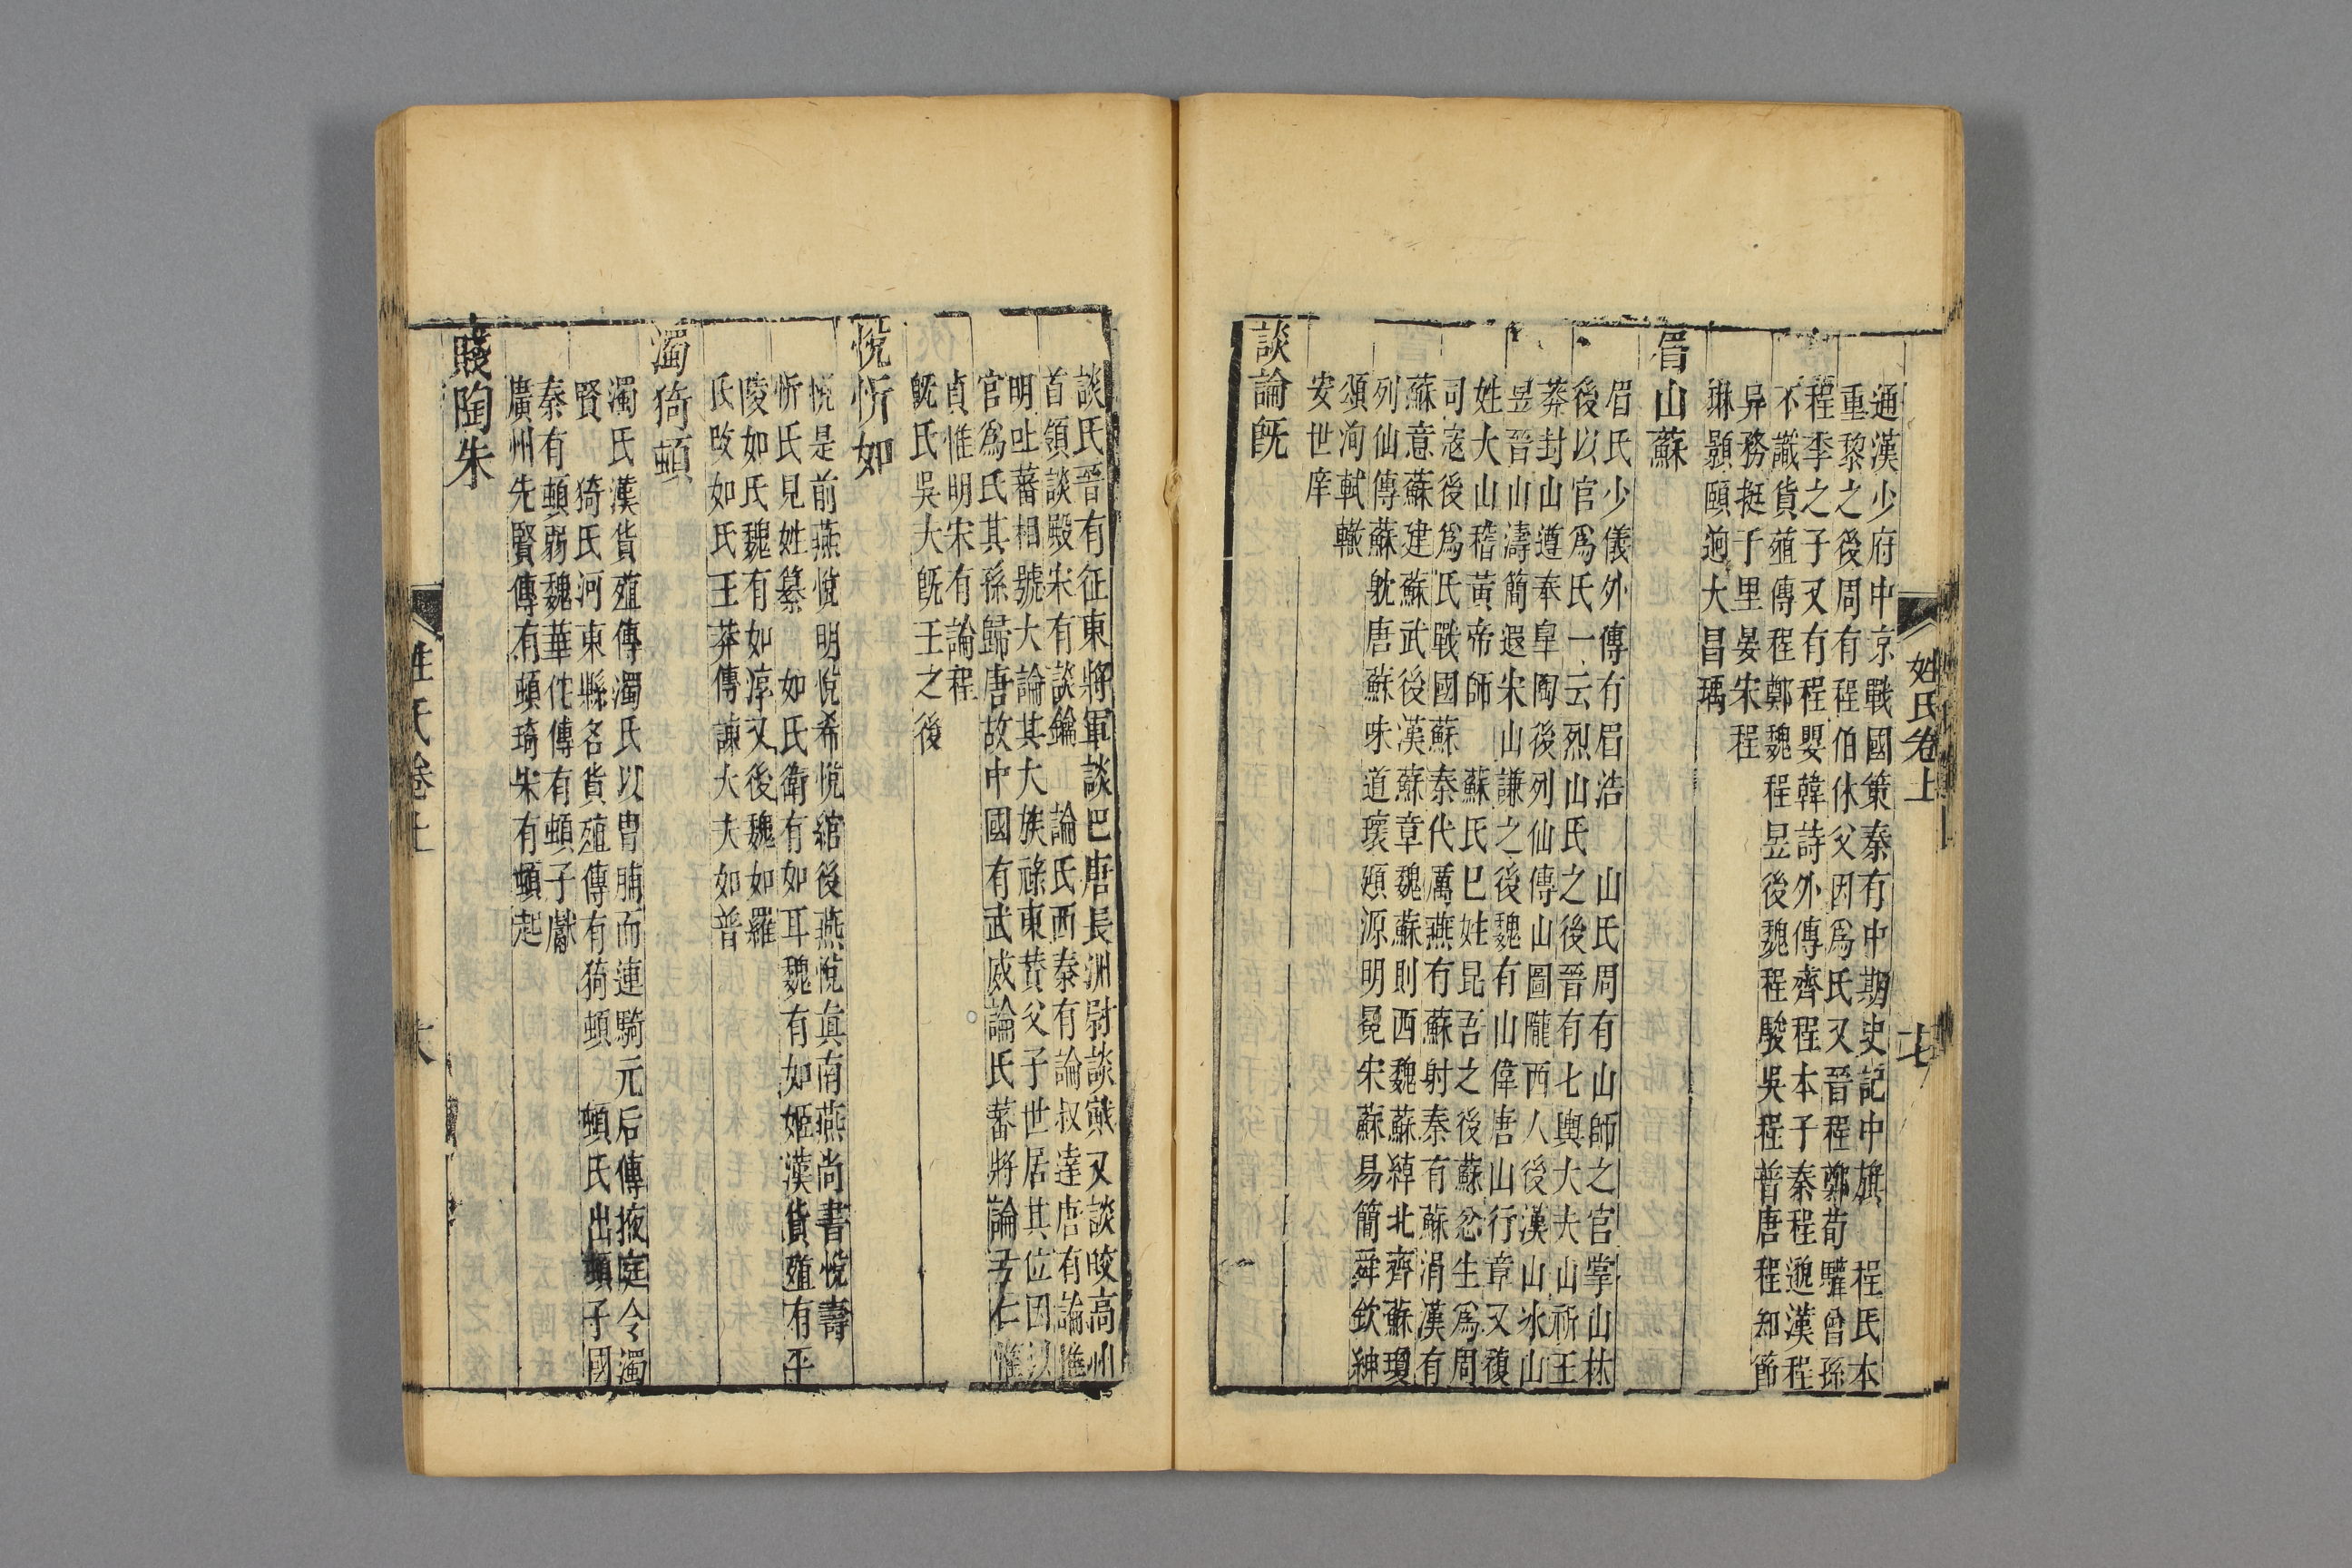 姓氏卷上
通漢少府中京戰國策秦有中期史記中旗　程氏本
重黎之後周有程伯休父因爲氏又晉程鄭荀驩曾孫
程季之子又有程嬰韓詩外傳齊程本子秦程邈漢程
不識貨殖傳程鄭魏程昱後魏程駿吳程普唐程知節
异務挺千里晏宋程
琳顥頤迥大昌瑀
眉山蘇
眉氏少儀外傳有眉浩　山氏周有山師之官掌山林
後以官爲氏一云烈山氏之後晉有七輿大夫山祈王
莽封山遵奉皐陶後列仙傳山圖隴西人後漢山氷山
昱晉山濤簡遐宋山謙之後魏有山偉唐山行章又複
姓大山稽黃帝師　蘇氏巳姓昆吾之後蘇忿生爲周
司寇後爲氏戰國蘇秦代厲燕有蘇射秦有蘇涓漢有
蘇意蘇建蘇武後漢蘇章魏蘇則西魏蘇綽北齊蘇瓊
列仙傳蘇躭唐蘇味道瓌頲源明冕宋蘇易簡舜欽紳
頌洵軾轍
安世庠
談論旣
談氏晉有征東將軍談巴唐長洲尉談戭又談皎高州
首領談殿宋有談鑰　論氏西秦有論叔達唐有論惟
明吐蕃相號大論其大族祿東贊父子世居其位因以
官爲氏其孫歸唐故中國有武威論氏蕃將論弓仁惟
貞惟明宋有論程
旣氏吳大旣王之後
悅忻如
悅是前燕悅明悅希悅綰後燕悅眞南燕尚書悅壽
忻氏見姓纂　如氏衛有如耳魏有如姬漢貨殖有平
陵如氏魏有如淳又後魏如羅
氏攺如氏王莽傳諫大夫如普
濁猗頓
濁氏漢貨殖傳濁氏以胃脯而連騎元后傳掖庭令濁
賢　猗氏河東縣名貨殖傳有猗頓　頓氏出頓子國
秦有頓弱魏華佗傳有頓子獻
廣州先賢傳有頓琦宋有頓起
賤陶朱
姓氏卷上